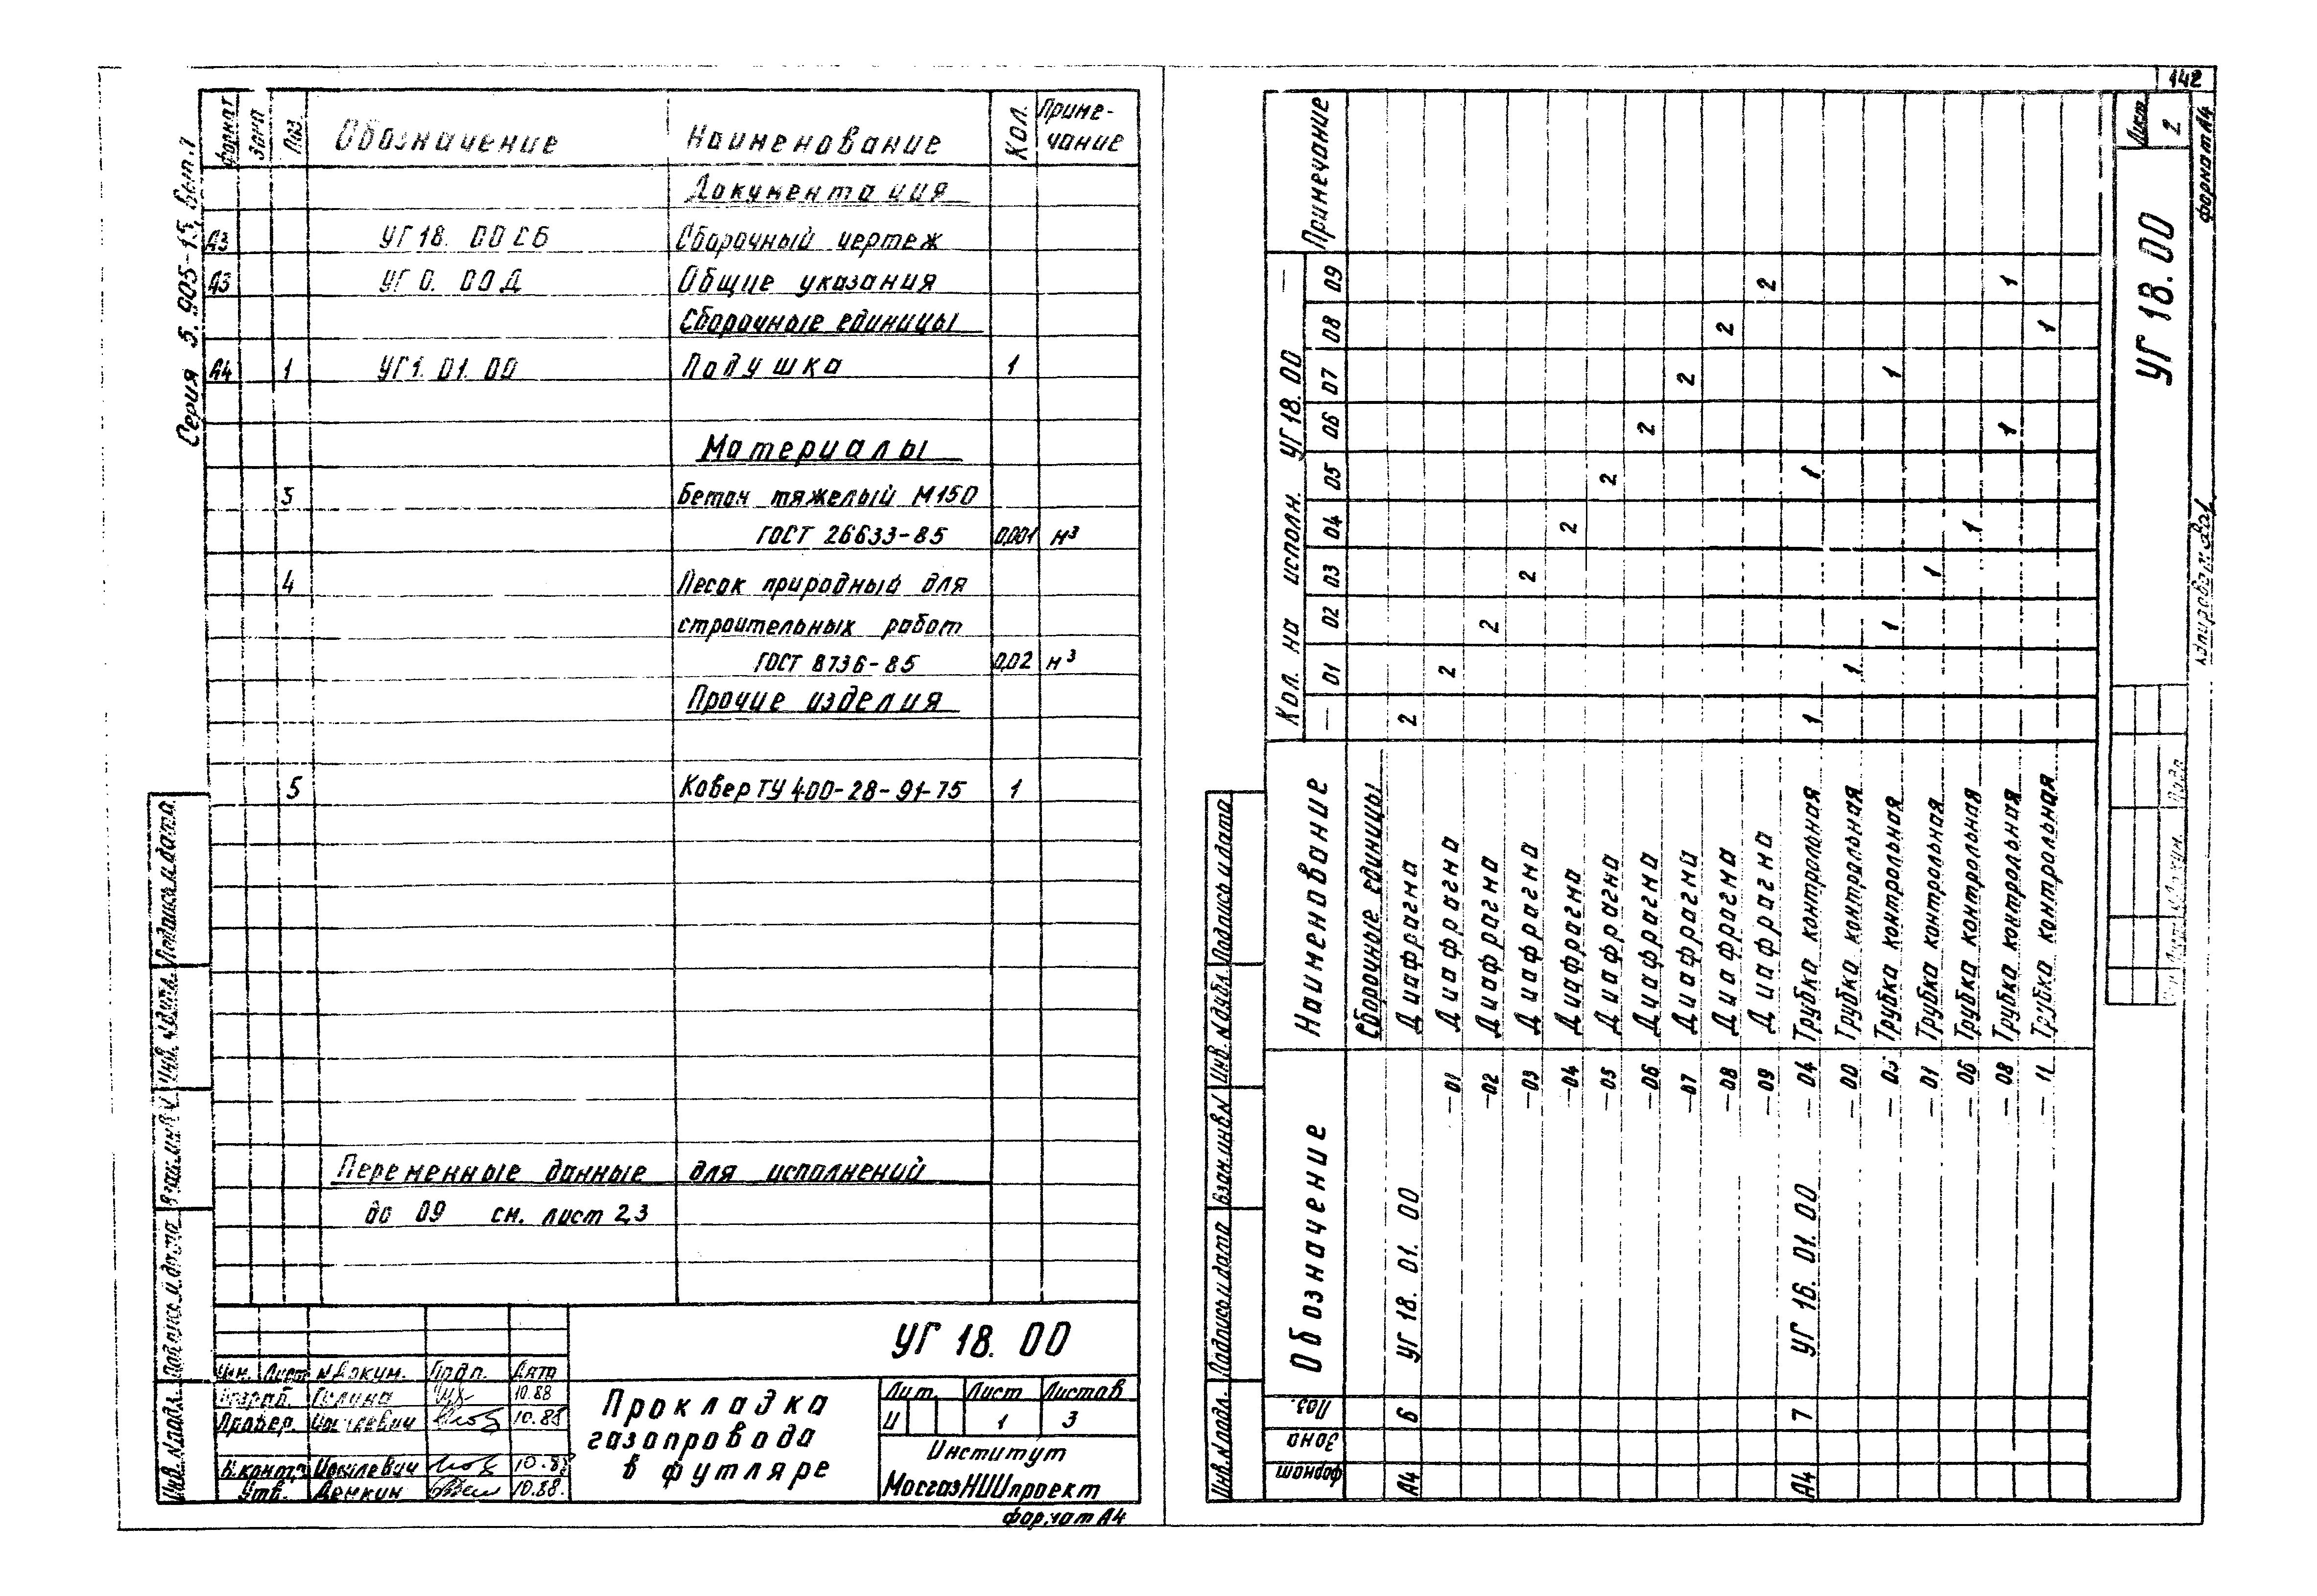 142
Серия 5.905-15 Вып.1
Формат Зона Поз. Обозначение Наименование Кол. Приме-чание
Документация
А3 УГ18. 00СБ Сборочный чертеж
А3 УГ 0. 00 Д Общие указания
Сборочные единицы
А4 1 УГ1. 01. 00 Подушка 1
Материалы
3 Бетон тяжелый М150
ГОСТ 26633-85 0,001 м³
4 Песок природный для
строительных работ
ГОСТ 8736-85 0,02 м³
Прочие изделия
5 Ковер ТУ 400-28-91-75 1
Переменные данные для исполнений
до 09 см. лист 2,3
Инв. N подл. Подпись и дата Взам. инв. N Инв. N дубл. Подпись и дата
УГ 18. 00
Изм. Лист N докум. Подп. Дата
Разраб. Галина 10.88
Провер. Иоселевич 10.88
Н.контр. Иоселевич 10.88
Утв. Демкин 10.88.
Прокладка
газопровода
в футляре
Лит. Лист Листов
И 1 3
Институт
МосгазНИИпроект
формат А4
Формат Зона Поз. Обозначение Наименование Кол. на исполн. УГ 18. 00 — Примечание
— 01 02 03 04 05 06 07 08 09
Сборочные единицы
А4 6 УГ 18. 01. 00 Диафрагма 2
—01 Диафрагма 2
—02 Диафрагма 2
—03 Диафрагма 2
—04 Диафрагма 2
—05 Диафрагма 2
—06 Диафрагма 2
—07 Диафрагма 2
—08 Диафрагма 2
—09 Диафрагма 2
А4 7 УГ 16. 01. 00 — 04 Трубка контрольная 1 1
— 00 Трубка контрольная 1
— 05 Трубка контрольная 1 1
— 01 Трубка контрольная 1
— 06 Трубка контрольная 1
— 08 Трубка контрольная 1 1
— 11 Трубка контрольная 1
Инв. N подл. Подпись и дата Взам. инв. N Инв. N дубл. Подпись и дата
УГ 18. 00
Лист
2
Копировал:
формат А4